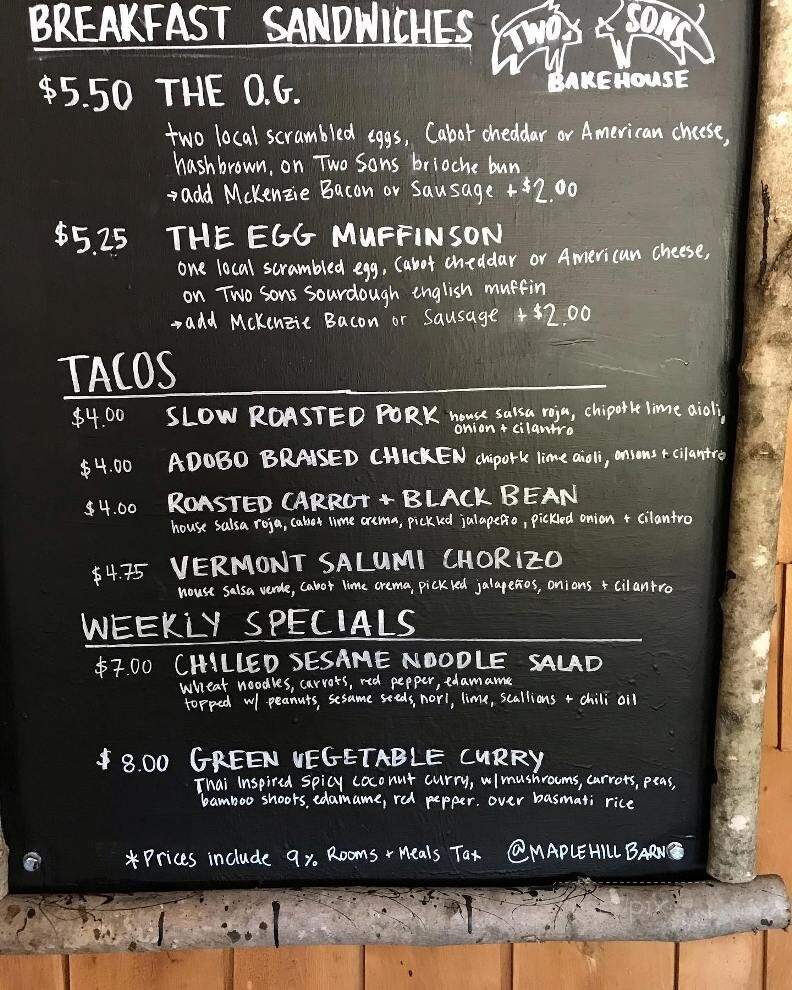 BREAKFAST SANDWICHES
TWO SONS
BAKEHOUSE
$5.50 THE O.G.
two local scrambled eggs, Cabot cheddar or American cheese,
hashbrown, on Two Sons brioche bun
→add McKenzie Bacon or Sausage +$2.00
$5.25 THE EGG MUFFINSON
one local scrambled egg, Cabot cheddar or American cheese,
on Two Sons Sourdough english muffin
→add McKenzie Bacon or Sausage +$2.00
TACOS
$4.00 SLOW ROASTED PORK house salsa roja, chipotle lime aioli,
onion + cilantro
$4.00 ADOBO BRAISED CHICKEN chipotle lime aioli, onions + cilantro
$4.00 ROASTED CARROT + BLACK BEAN
house salsa roja, cabot lime crema, pickled jalapeño, pickled onion + cilantro
$4.75 VERMONT SALUMI CHORIZO
house salsa verde, Cabot lime crema, pickled jalapeños, onions + cilantro
WEEKLY SPECIALS
$7.00 CHILLED SESAME NOODLE SALAD
wheat noodles, carrots, red pepper, edamame
topped w/ peanuts, sesame seeds, nori, lime, scallions + chili oil
$8.00 GREEN VEGETABLE CURRY
Thai Inspired Spicy coconut curry, w/mushrooms, carrots, peas,
bamboo shoots, edamame, red pepper. over basmati rice
*Prices include 9% Rooms + Meals Tax @MAPLEHILLBARN